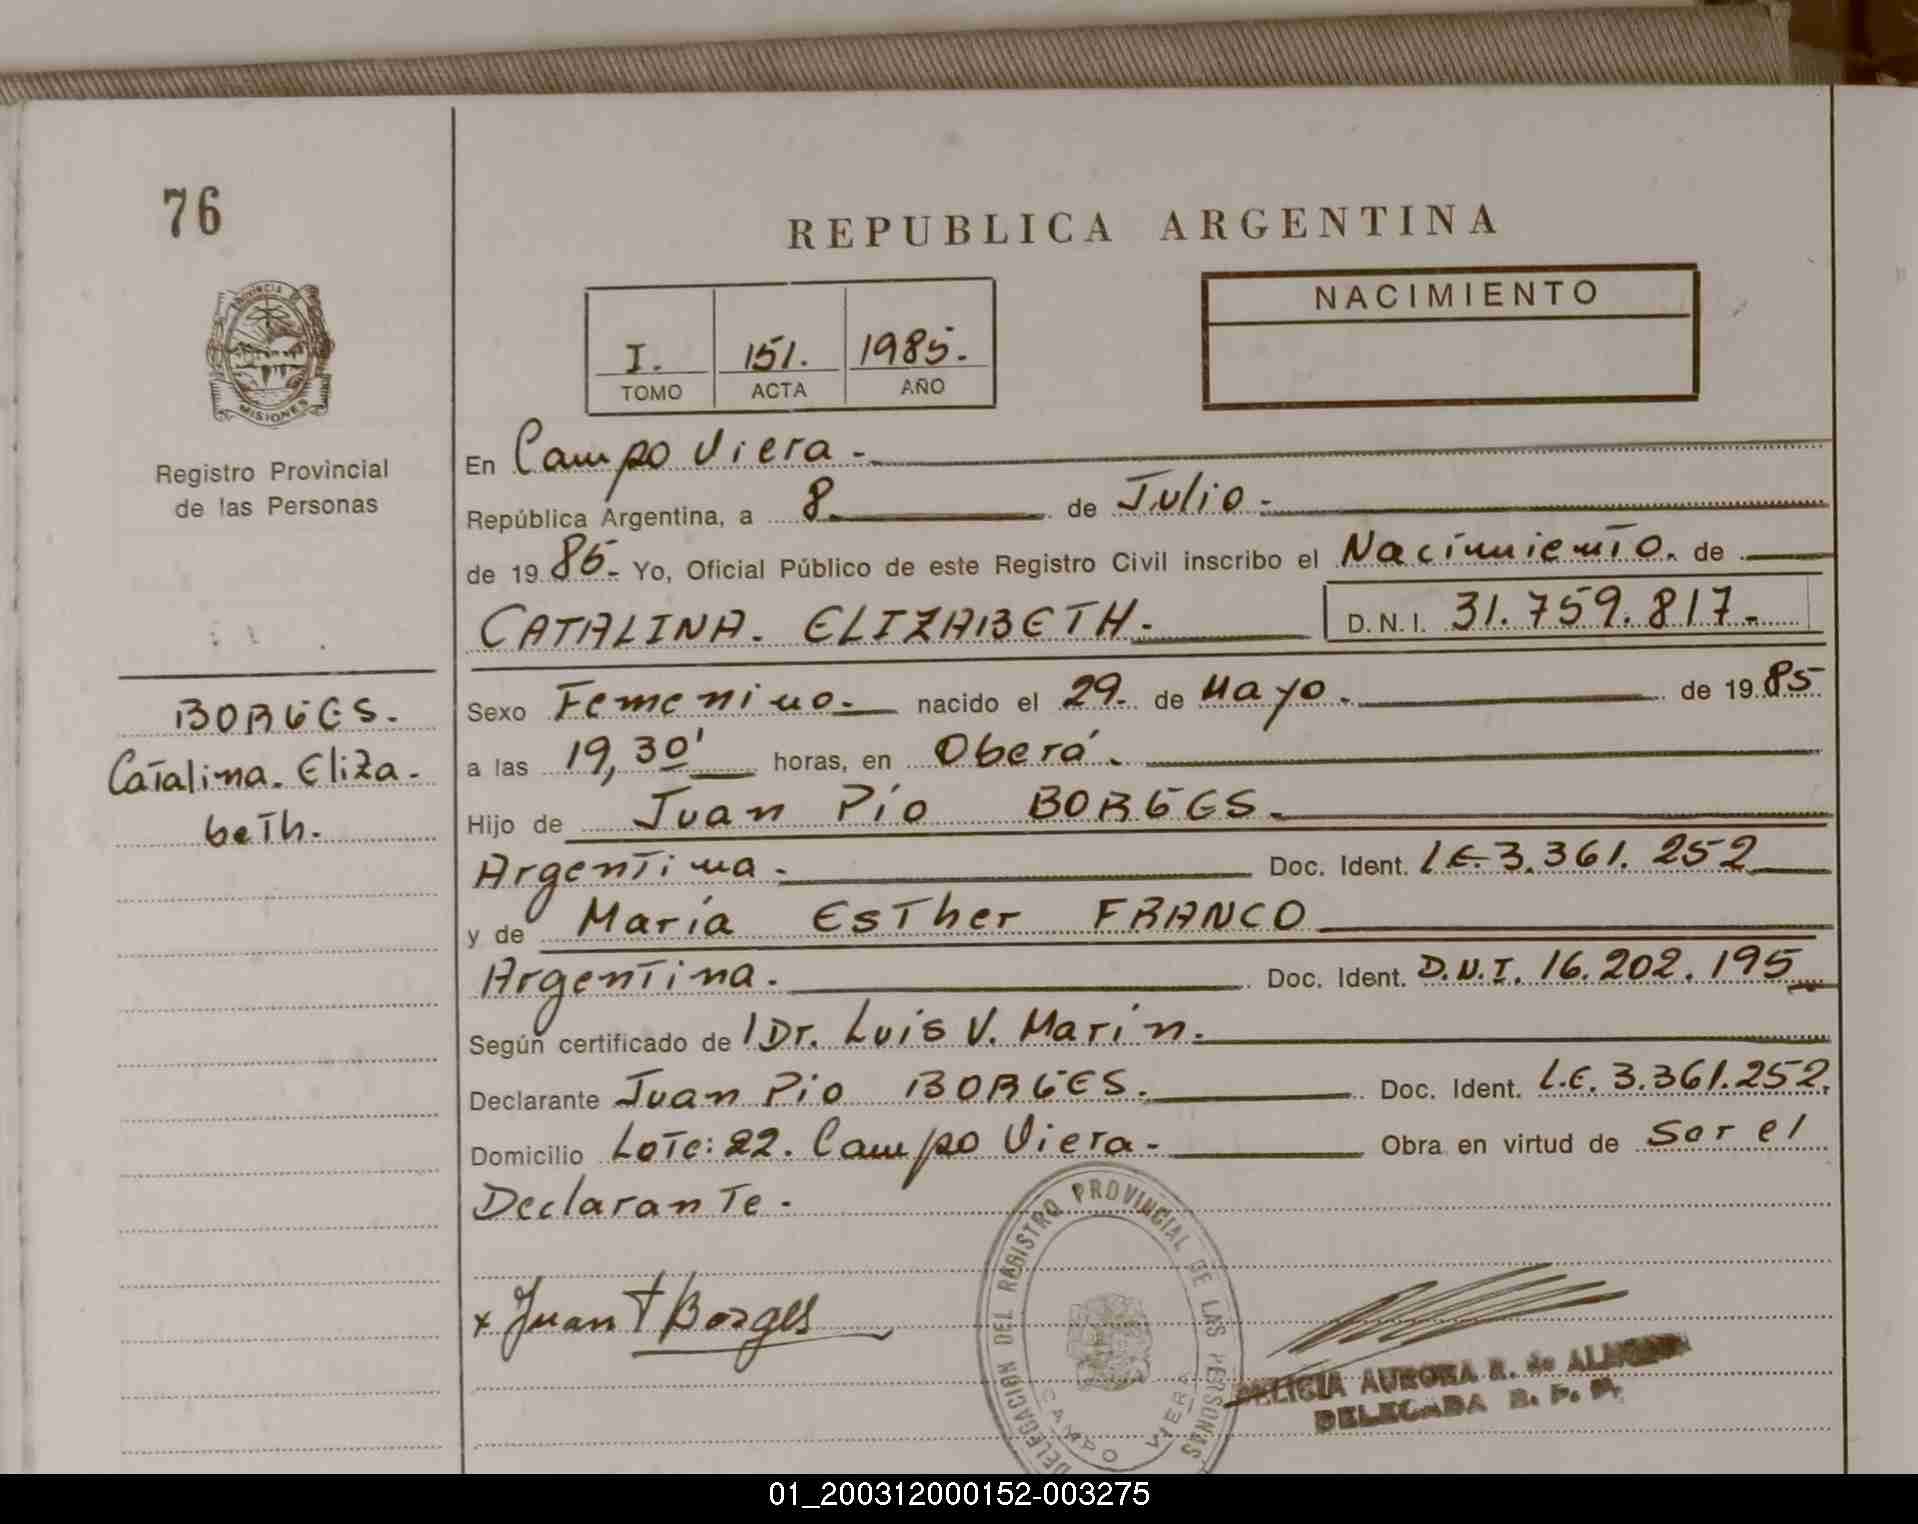 76
REPUBLICA ARGENTINA
PROVINCIA DE
MISIONES
Registro Provincial
de las Personas
I. 151. 1985.
TOMO ACTA AÑO
NACIMIENTO
En Campo Viera.-
República Argentina, a 8. de Julio-
de 19 85- Yo, Oficial Público de este Registro Civil inscribo el Nacimiento. de
CATALINA. ELIZABETH.- D.N.I. 31.759.817-
BORGES.
Catalina. Eliza.
beth.
Sexo Femenino.- nacido el 29. de Mayo. de 19 85
a las 19,30' horas, en Oberá.
Hijo de Juan Pío BORGES.
Argentina.- Doc. Ident. LE.3.361.252
y de María Esther FRANCO
Argentina. Doc. Ident. D.N.I. 16.202.195
Según certificado de Dr. Luis V. Marín.
Declarante Juan Pio BORGES. Doc. Ident. L.E. 3.361.252.
Domicilio Lote: 22. Campo Viera- Obra en virtud de Ser el
Declarante.
x Juan P Borges
DELEGACION DEL REGISTRO PROVINCIAL DE LAS PERSONAS
CAMPO VIERA
DELICIA AURORA R. de
DELEGADA R. P. P.
01_200312000152-003275